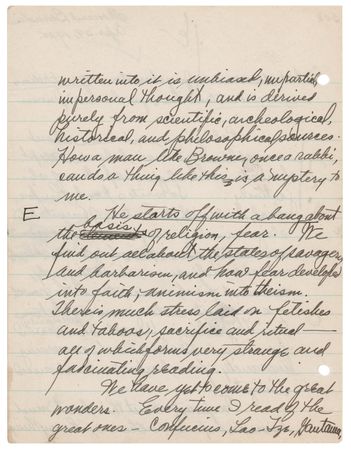 written into it is unbiased, impartial,
impersonal thought, and is derived
purely from scientific, archeological,
historical, and philosophical sources.
How a man like Browne, once a rabbi,
can do a thing like this, is a mystery to
me.
E He starts off with a bang about
the basis of religion, fear. We
find out all about the states of savagery
and barbarism, and how fear developed
into faith; animism into theism.
There is much stress laid on fetishes
and taboos, sacrifice and ritual—
all of which forms very strange and
fascinating reading.
We have yet to come to the great
wonders. Every time I read of the
great ones — Confucius, Lao-Tze, Gautama,